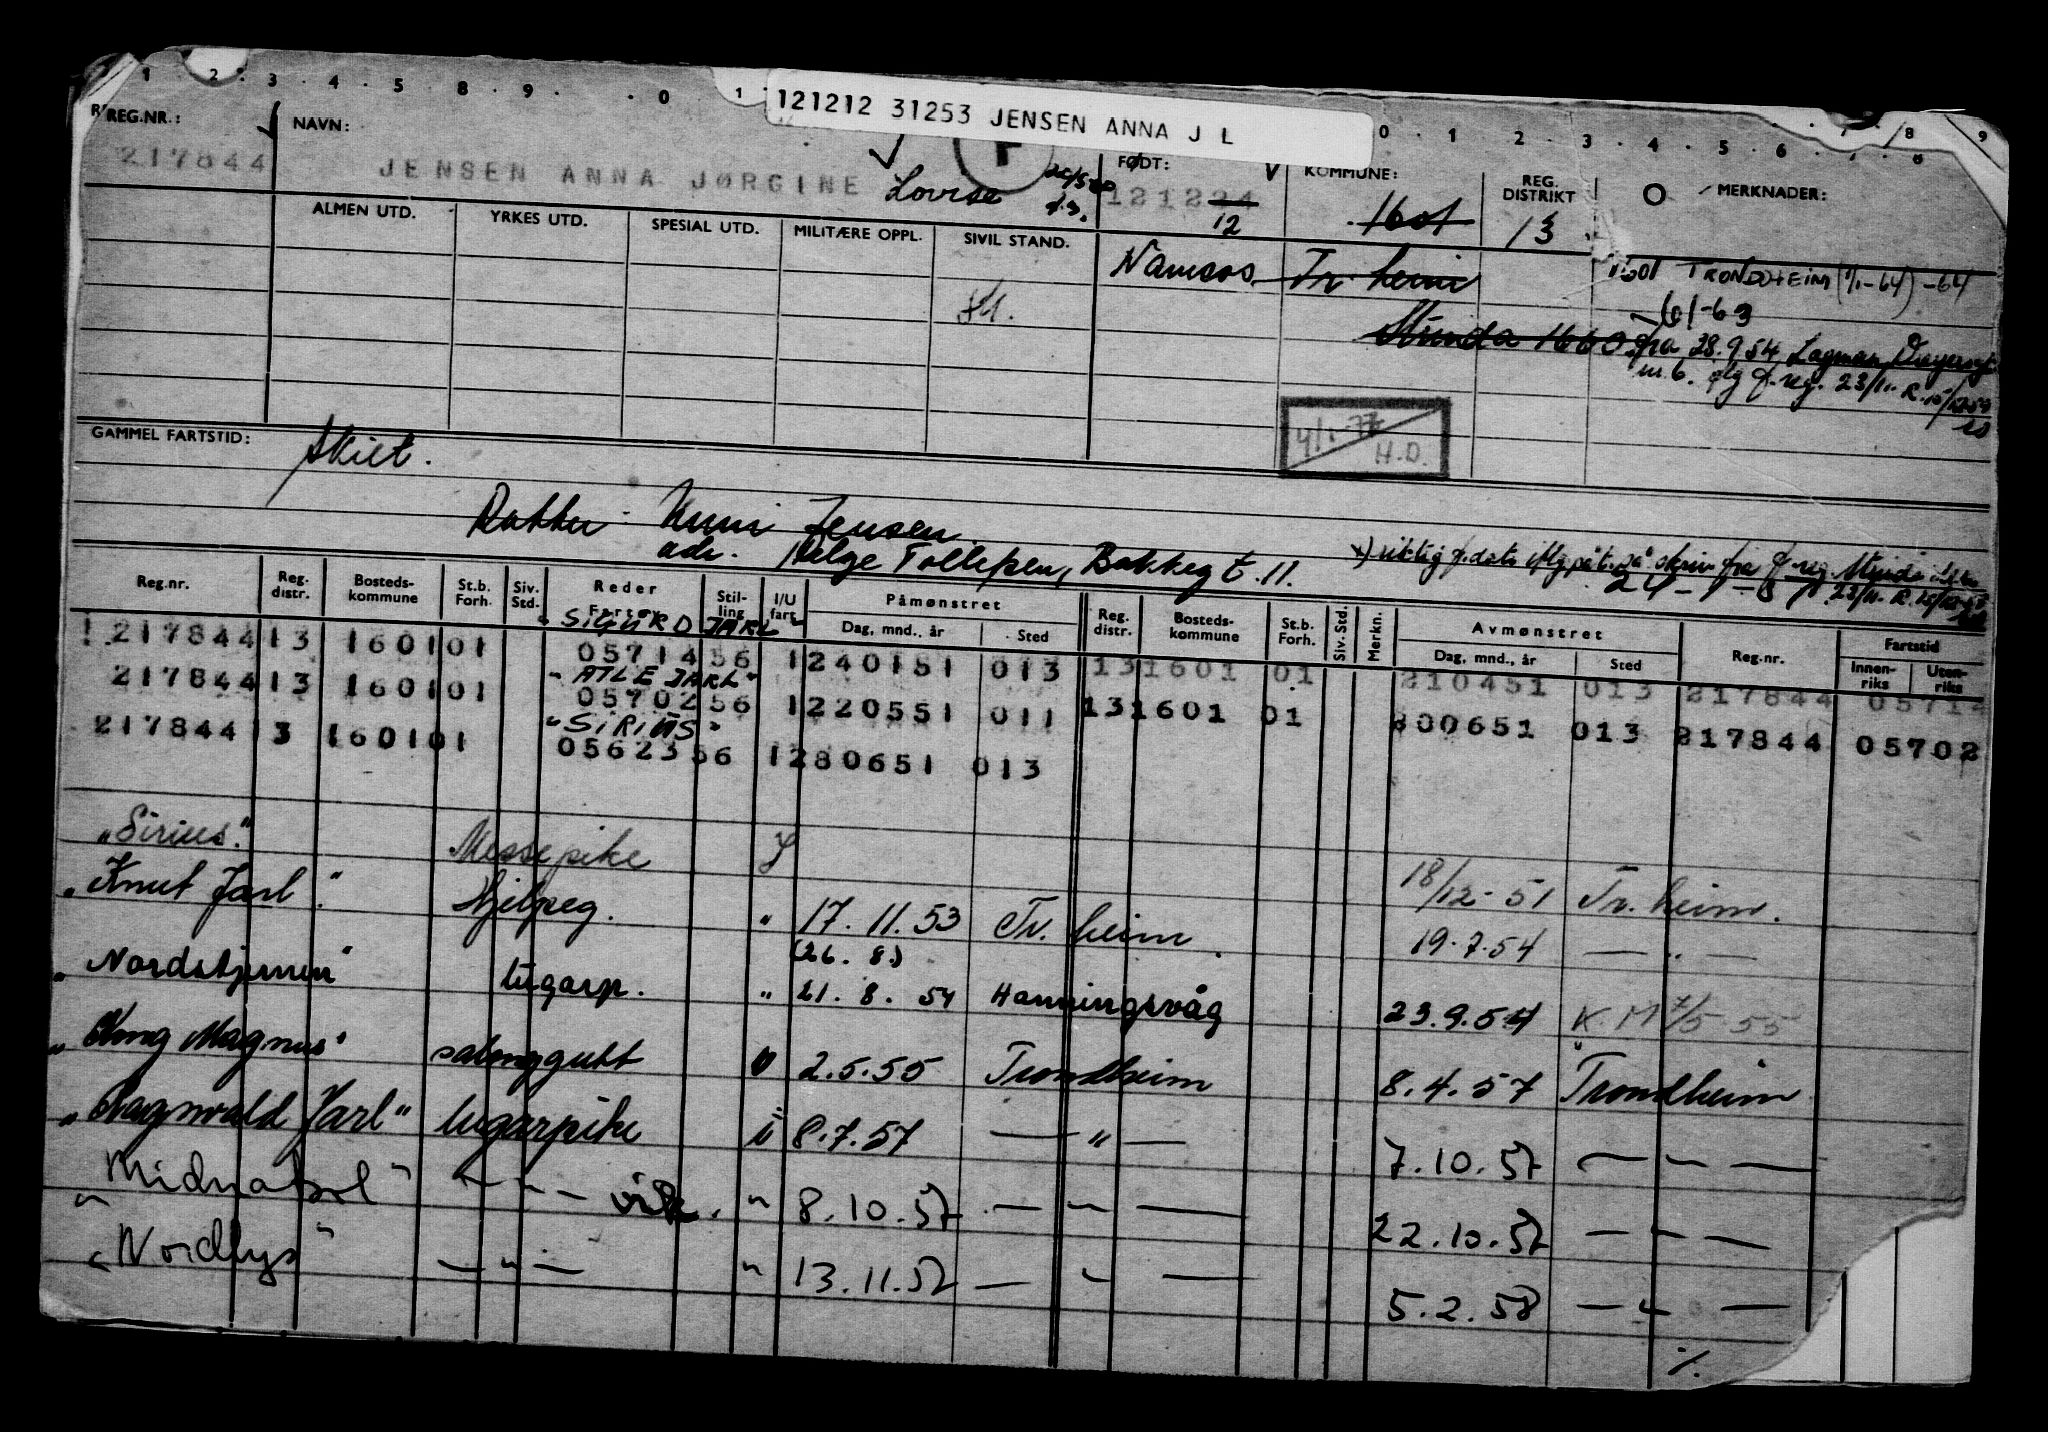 1 2 3 4 5 8 9 0 1 0 1 2 3 4 5 6 7 8 9
121212 31253 JENSEN ANNA J L
REG.NR.: NAVN: FØDT: KOMMUNE: REG. DISTRIKT MERKNADER:
217844 JENSEN ANNA JØRGINE Lovise 121224 1601 13
12
ALMEN UTD. YRKES UTD. SPESIAL UTD. MILITÆRE OPPL. SIVIL STAND.
Namsos Tr.heim 1601 TRONDHEIM (1/1-64) -64
61-63
Strinda 1660 fra 28.9.54 Lagman
m.6. 23/11. R.
4/1-77 H.D.
GAMMEL FARTSTID: skilt.
Datter: Unni Jensen
adr. Helge Tollefsen, Bakkeg t. 11.
riktig f.dato
24-1-
Reg.nr. Reg. distr. Bosteds-kommune St.b. Forh. Siv. Std. Reder Fartøy Stil-ling I/U fart Påmønstret Reg. distr. Bosteds-kommune St.b. Forh. Siv. Std. Merkn. Avmønstret Reg.nr. Fartstid
Dag, mnd., år Sted Dag, mnd., år Sted Innen-riks Uten-riks
SIGURD JARL
217844 13 1601 01 05714 56 1 240151 013 13 1601 01 210451 013 217844 05714
"ATLE JARL"
217844 13 1601 01 05702 56 1 220551 011 13 1601 01 300651 013 217844 05702
"SIRIUS"
217844 13 1601 01 05623 56 1 280651 013
"Sirius" Messepike 18/12-51 Tr.heim.
"Knut Jarl" Hjelpeg. " 17.11.53 Tr.heim 19.7.54 — " —
(26. 8.)
"Nordstjernen" lugarp. " 21. 8. 54 Honningsvåg 23.9.54 K.M 7/5-55
"Kong Magnus" salonggutt 2.5.55 Trondheim 8.4.57 Trondheim
"Ragnvald Jarl" lugarpike i 8.7.57 — " — 7.10.57 — " —
"Midnatsol" — " — vik. " 8.10.57 — " — 22.10.57 — " —
"Nordlys" — " — " 13.11.57 — " — 5.2.58 — " —
%.